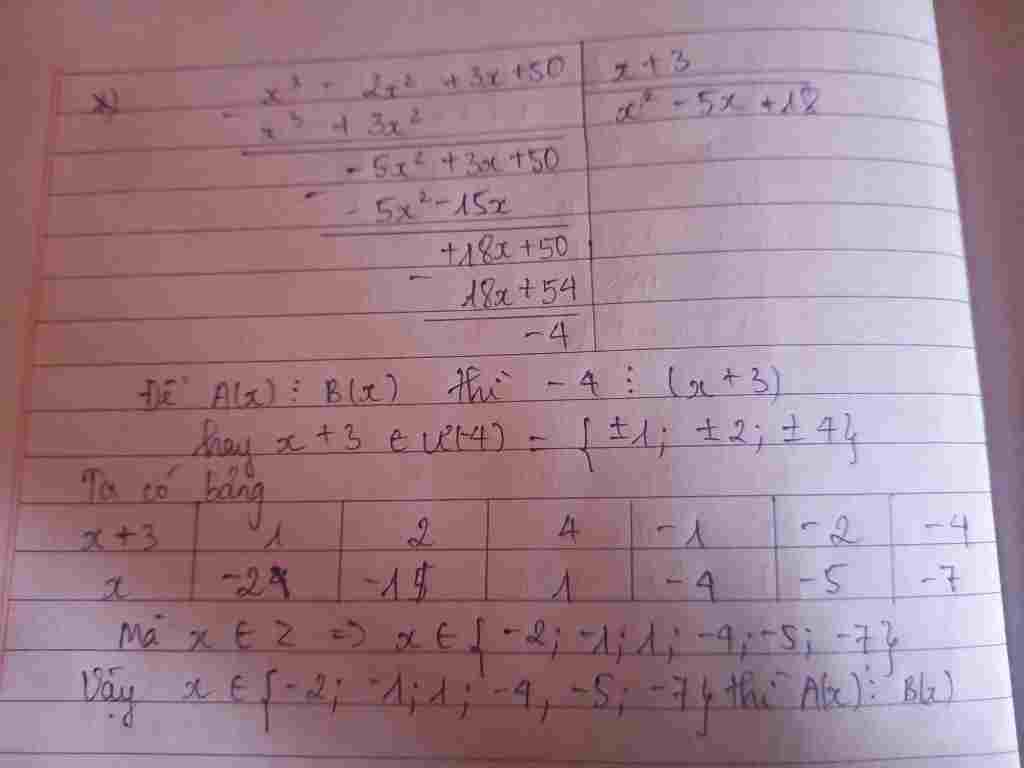 x) x³ - 2x² + 3x + 50 | x + 3
- x³ + 3x² | x² - 5x + 18
- 5x² + 3x + 50
- - 5x² - 15x
+ 18x + 50
- 18x + 54
- 4
Để A(x) ⋮ B(x) thì - 4 ⋮ (x + 3)
hay x + 3 ∈ Ư(-4) = { ±1; ±2; ±4}
Ta có bảng
x + 3 | 1 | 2 | 4 | -1 | -2 | -4
x | -2 | -1 | 1 | -4 | -5 | -7
Mà x ∈ Z => x ∈ { -2; -1; 1; -4; -5; -7}
Vậy x ∈ { -2; -1; 1; -4, -5; -7} thì A(x) ⋮ B(x)